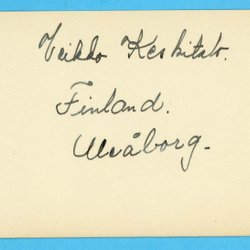 Veikko Keskitalo.
Finland.
Uleåborg.